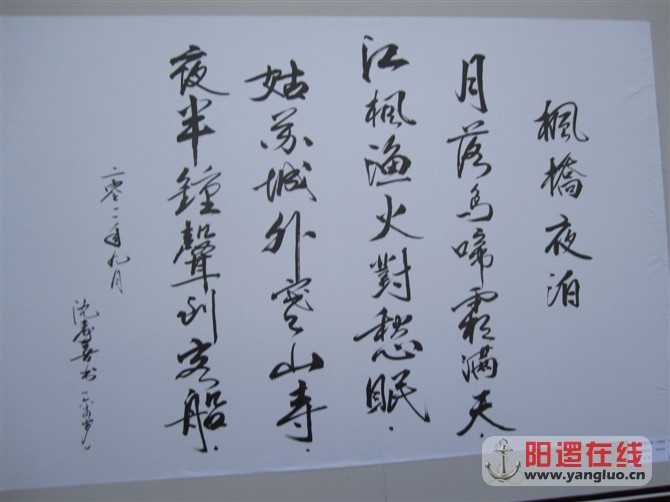 楓橋夜泊
月落烏啼霜滿天.
江楓漁火對愁眠.
姑苏城外寒山寺.
夜半鐘聲到客船.
二零一一年九月
阳逻在线
www.yangluo.cn